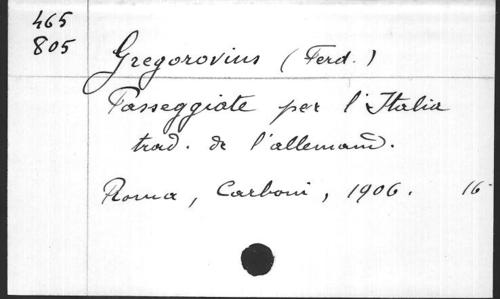 465
805
Gregorovius (Ferd.)
Passeggiate per l'Italia
trad. de l'allemand.
Roma, Carboni, 1906. 16